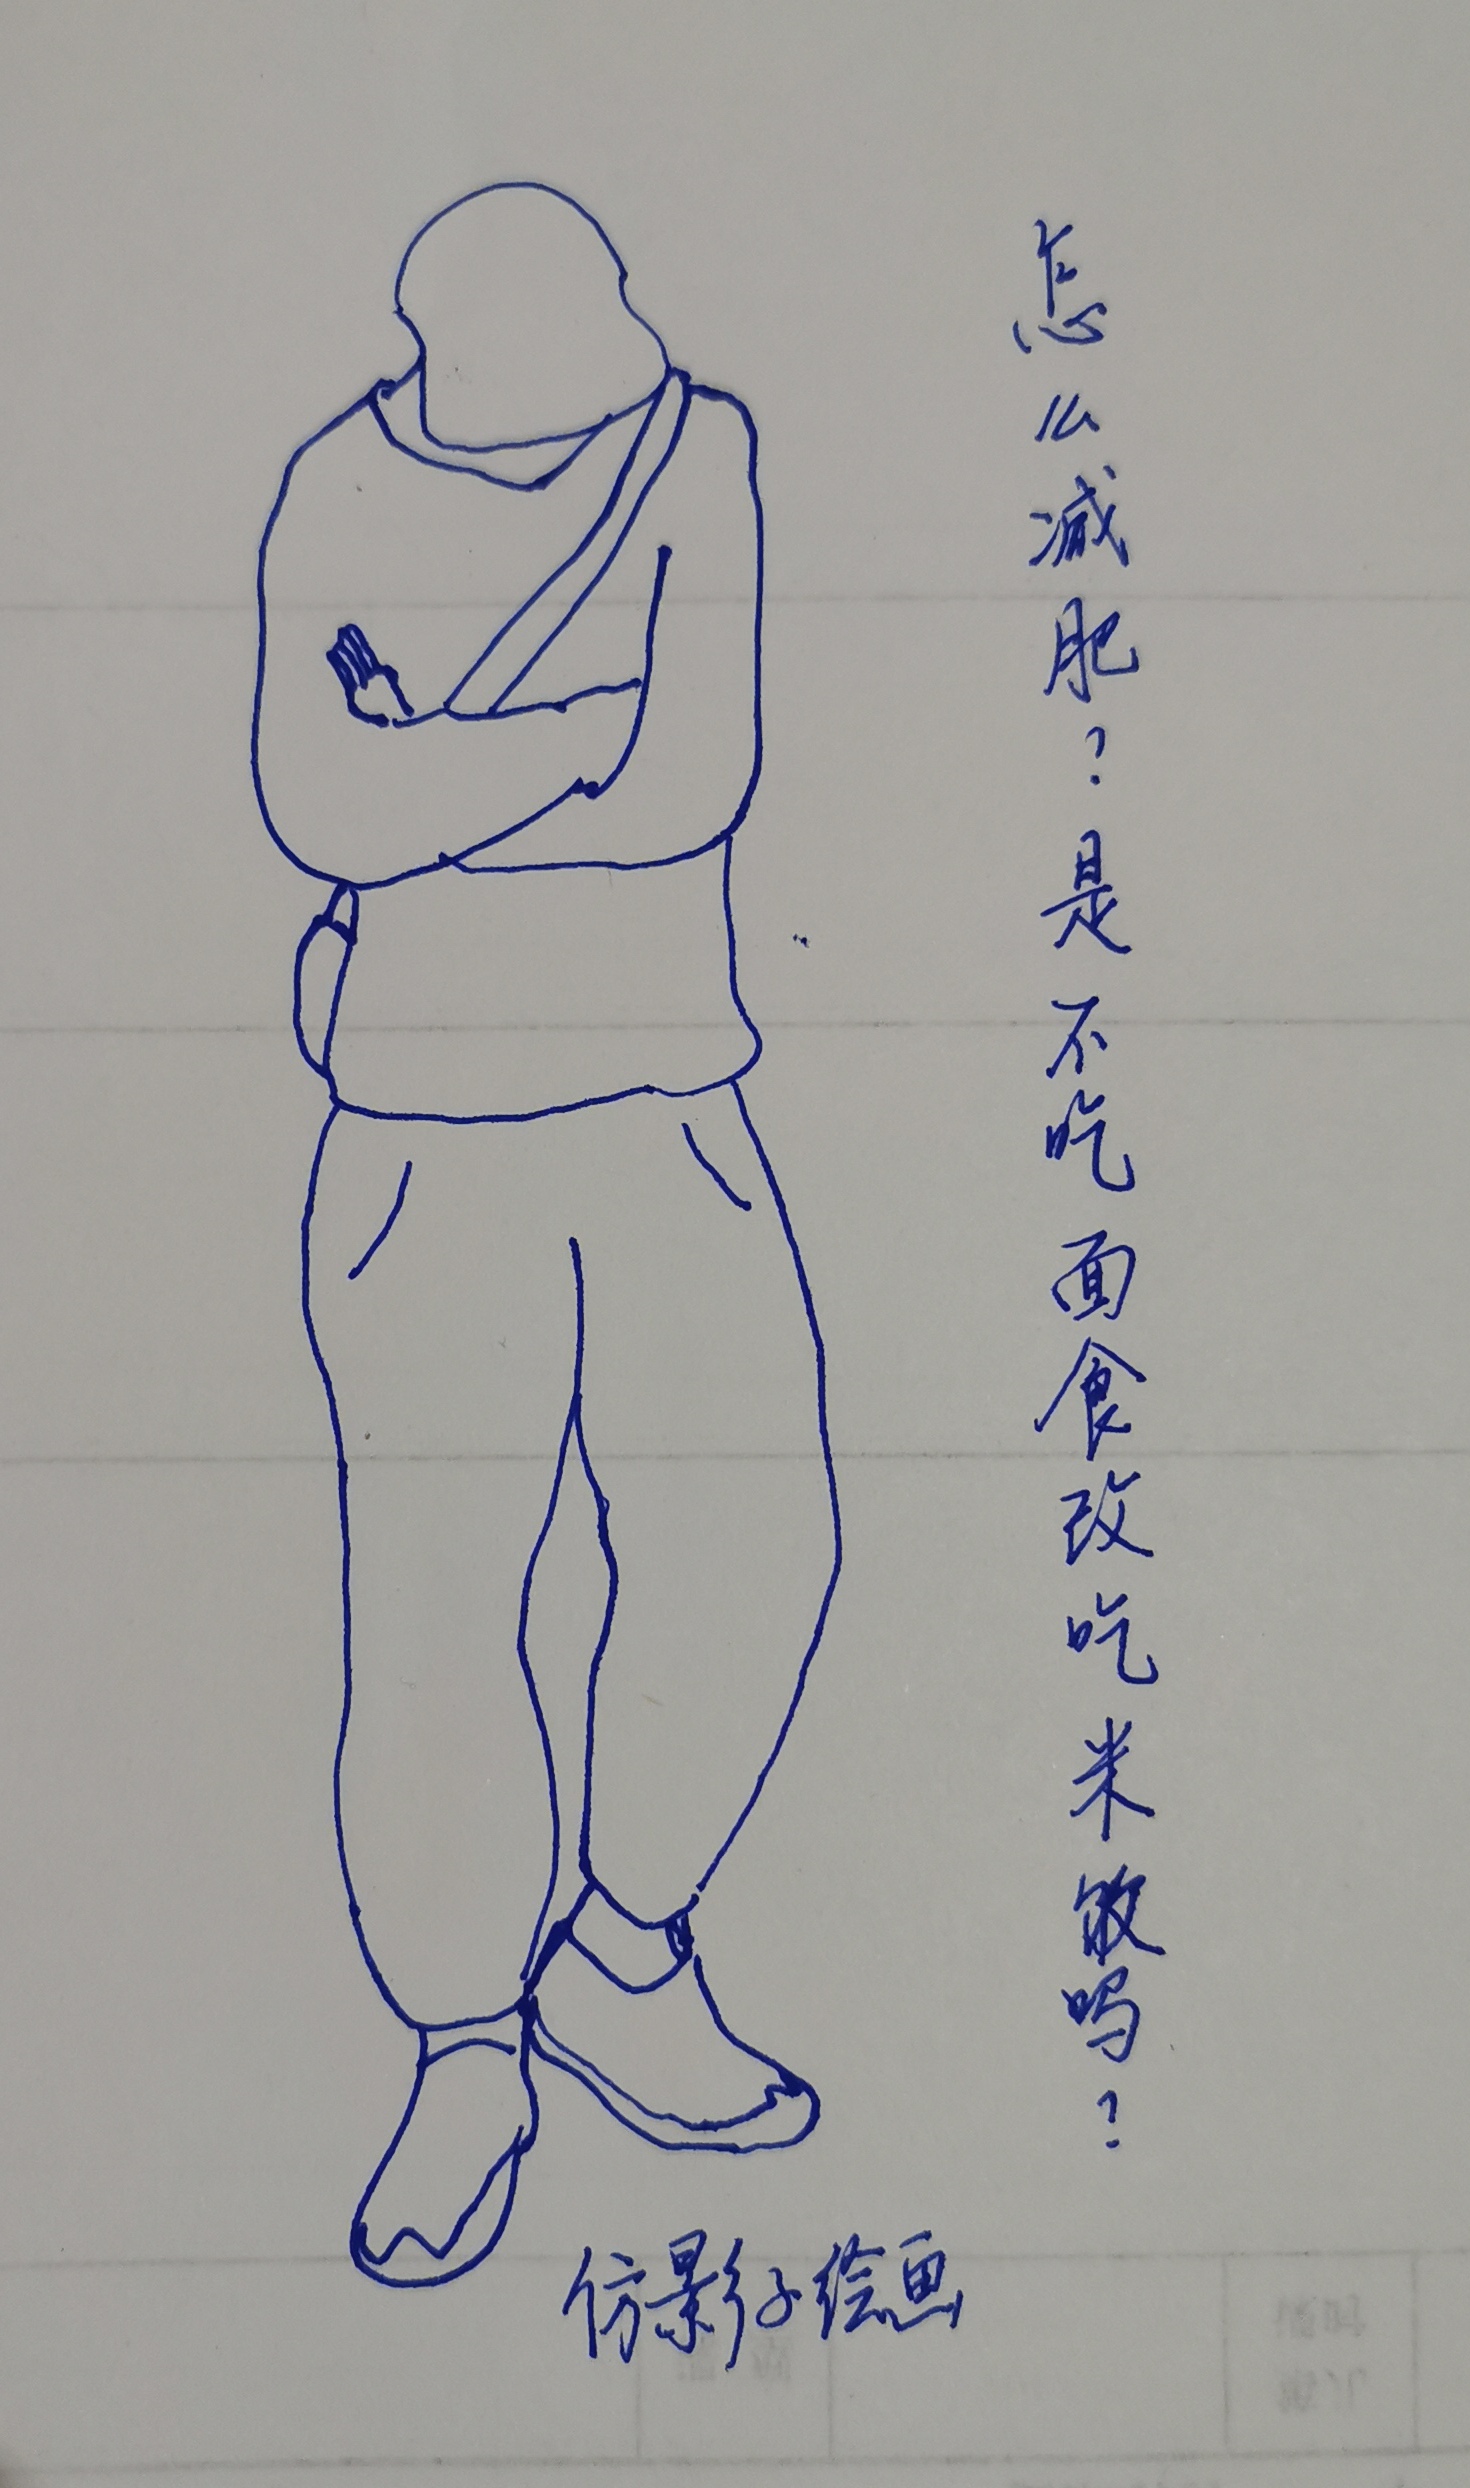 怎么减肥？是不吃面食改吃米饭吗？
仿影子绘画